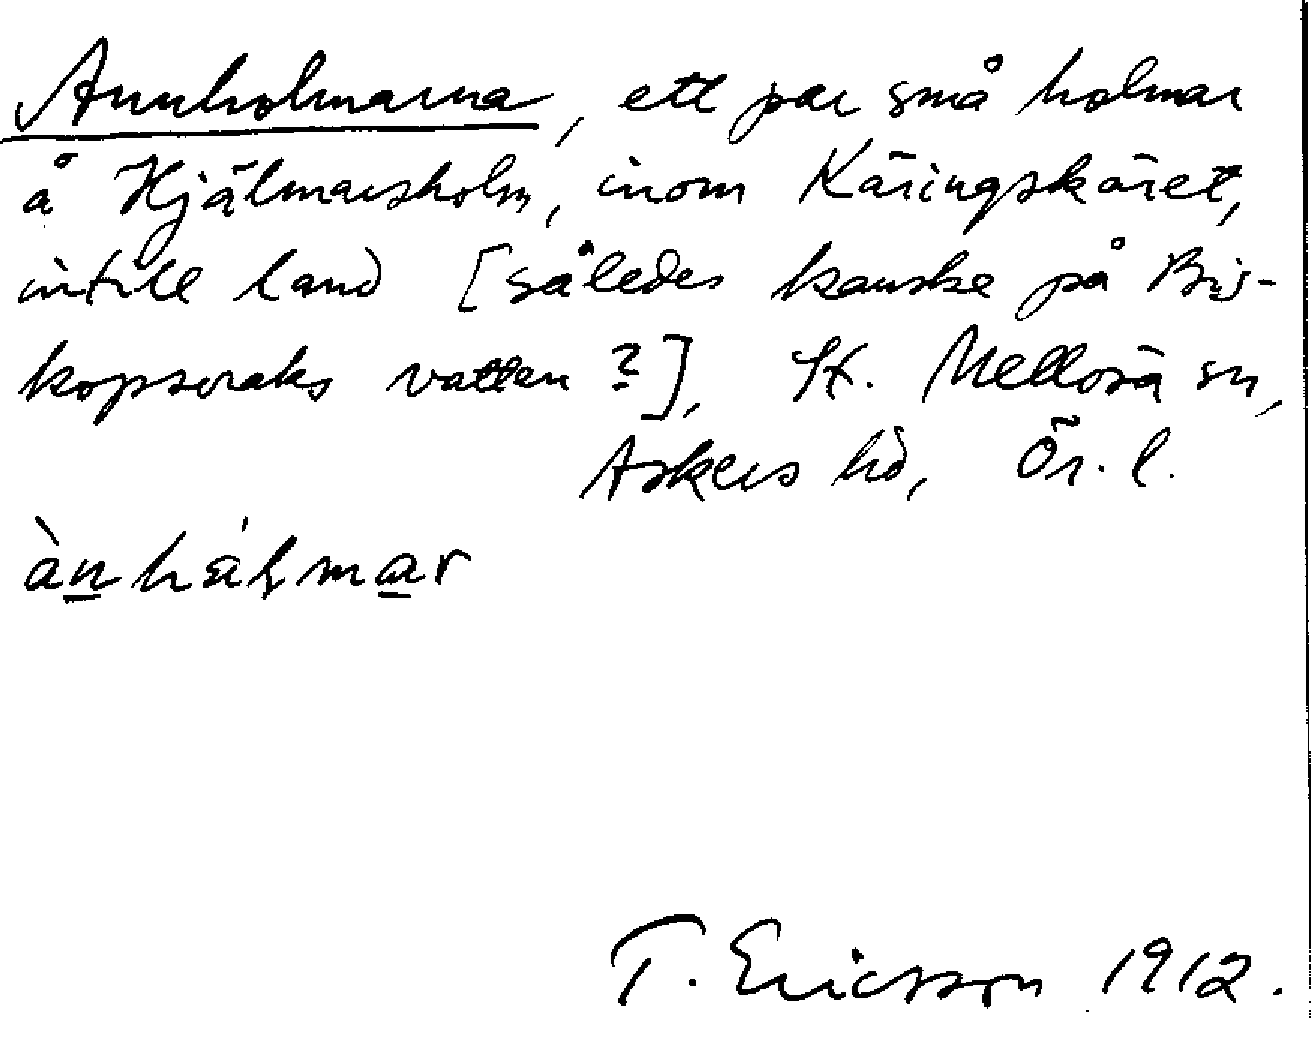 Annholmarna, ett par små holmar
å Hjälmarsholm, inom Käringskäret,
intill land [således kanske på Bis-
kopsvraks vatten ?], St. Mellösa sn,
Askers hd, Ör. l.
ànhálmar
T. Ericsson 1912.